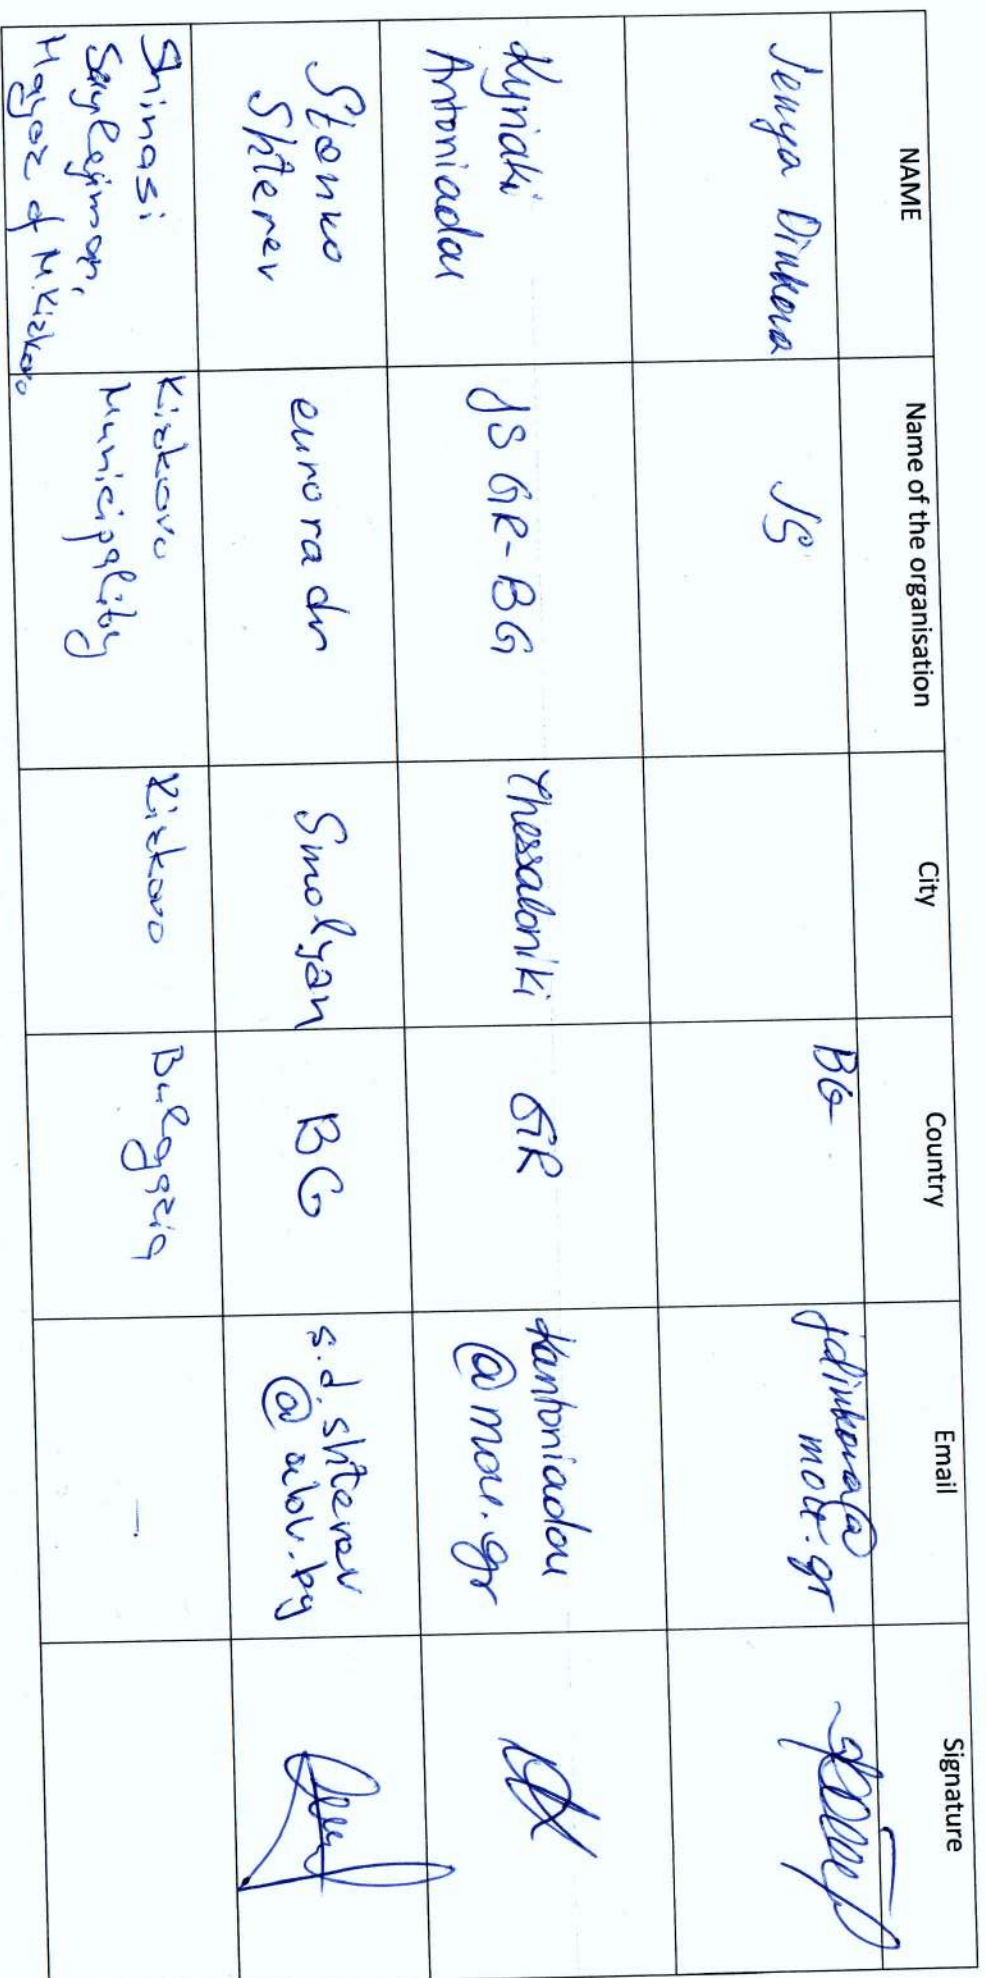 NAME
Name of the organisation
City
Country
Email
Signature
Jenya Dinkova
JS
BG
jdinkova@
mou.gr
Kyriaki
Antoniadou
JS GR-BG
Thessaloniki
GR
kantoniadou
@mou.gr
Stanko
Shterev
eurora dn
Smolyan
BG
s.d.shterev
@abv.bg
Shinasi
Mayor of M.Kirkovo
Kirkovo
Municipality
Kirkovo
Bulgaria
-